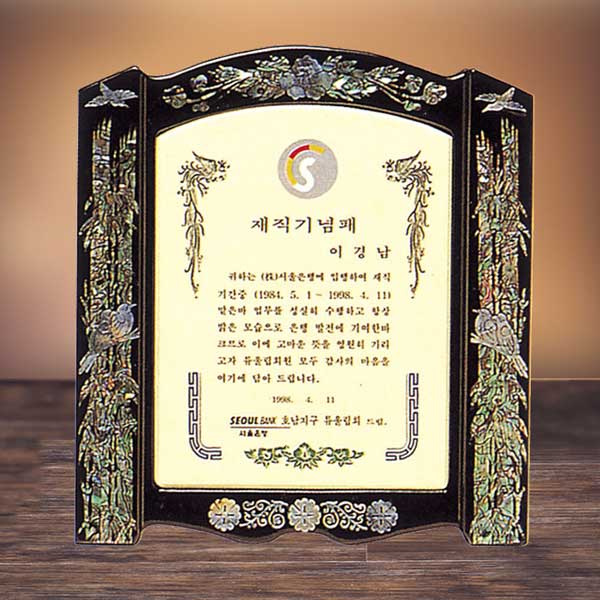 S
재직기념패
이 경 남
귀하는 (株)서울은행에 입행하여 재직
기간중 (1984. 5. 1 ~ 1998. 4. 11)
맡은바 업무를 성실히 수행하고 항상
밝은 모습으로 은행 발전에 기여한바
크므로 이에 고마운 뜻을 영원히 기리
고자 튜울립회원 모두 감사의 마음을
여기에 담아 드립니다.
1998. 4. 11
SEOULBANK 호남지구 튜울립회 드림.
서울은행